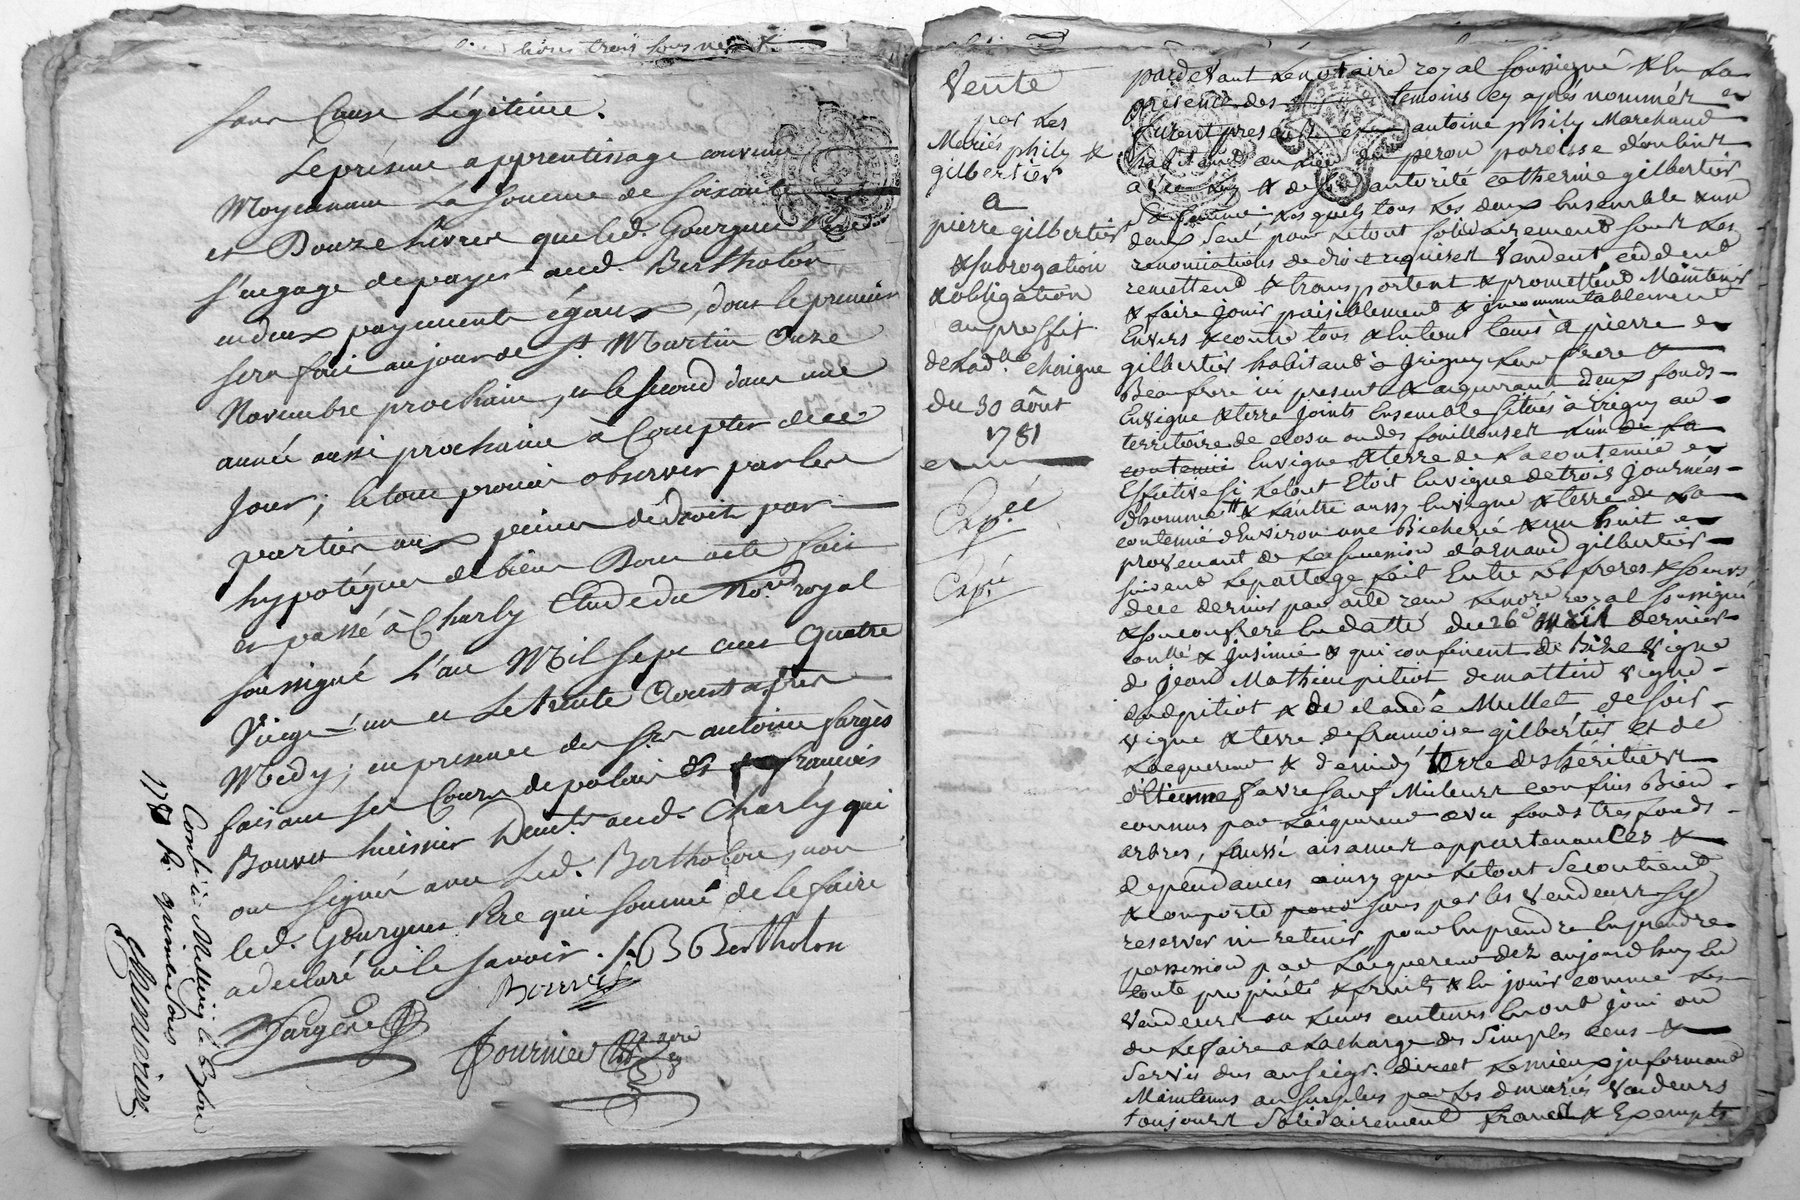 sans Cause Légitime.
Le présent apprentissage convenu
Moyennant La Somme de soixante
et Douze Livres que led. Gourgues Pere
s'engage de payer aud. Bertholon
en deux payements égaux, dont le premier
sera fait au jour de St. Martin Onze
Novembre prochain, et le second dans une
année aussi prochaine à Compter de ce
jour; le tout promis observer par les
parties aux peines de droit par
hypotéque de biens Dont acte fait
et passé à Charly Etude du No.re royal
soussigné L'an Mil sept cent Quatre
Vingt-un et Le trente Aoust après
Midy; en presence de Sr. antoine fargès
faisant ses Cours de palais et françois
Bouvet huissier Demt. aud. Charly qui
ont signé avec led. Bertholon, non
led. Gourgues Pere qui sommé de le faire
a declaré ne le savoir. B Bertholon
Bouvet
Fargès
Fournier
Controllé à Millery le
1781 Rx quinze sols
Vente
par Les
Mariés phily &
gilbertier
a
pierre gilbertier
& subrogation
& obligation
au proffit
de Lad.
du 30 aôut
1781
Exp.ée
Exp.é
pardevant Le notaire royal soussigné & En La
presence des temoins cy après nommés
furent presents antoine phily Marchand
habitant au lieu du peron paroisse d'oulins
& de lui autorité catherine gilbertier
Sa femme, Lesquels tous Les deux Ensemble & un
deux Seul pour Le tout solidairement sous Les
renonciations de droit requises Vendent cèdent
remettent & transportent & promettent Maintenir
& faire jouir paisiblement & incommutablement
Envers & contre tous & En tous tems à pierre
gilbertier habitant à Irigny Leur frere &
Beaufrere ici present & acquerant deux fonds
En vigne & terre joints Ensemble Situés à Irigny au
territoire de ou des fouillouses L'un de La
contenue En vigne & terre de La contenue
Effective si Le tout Etoit En vigne de trois journées
d'homme & L'autre aussy En vigne & terre de La
contenue d'Environ une Bicherée & un huit
provenant de La succession d'arnaud gilbertier
suivant Le partage fait Entre Les freres & soeurs
de ce dernier par acte reçu Le no.re royal soussigné
& son confrere En datte du 26e dernier
conllé & Insinué & qui confinent de Bize Vigne
de jean Mathieu pitiot de mattin vigne
dud. pitiot & de claude Mullet de soir
vigne & terre de françoise gilbertier et de
L'acquereur & de midy terre des héritiers
d'Etienne favre sauf Meilleurs confins Bien
connus par L'acquereur avec fonds tres fonds
arbres, aisances appartenances &
dependances ainsy que Le tout Se contient
& comporte sans par les Vendeurs s'y
reserver ni retenir, pour En prendre
possession par L'acquereur dez aujourd'huy En
toute propriété & fruits & En jouir comme Les
Vendeurs ou Leurs auteurs En ont joui ou
du Le faire a La charge des Simples Cens &
Servis dus au seigr. direct Le mieux informant
Maintenus au surplus par Les d. mariés Vendeurs
toujours Solidairement francs & Exempts